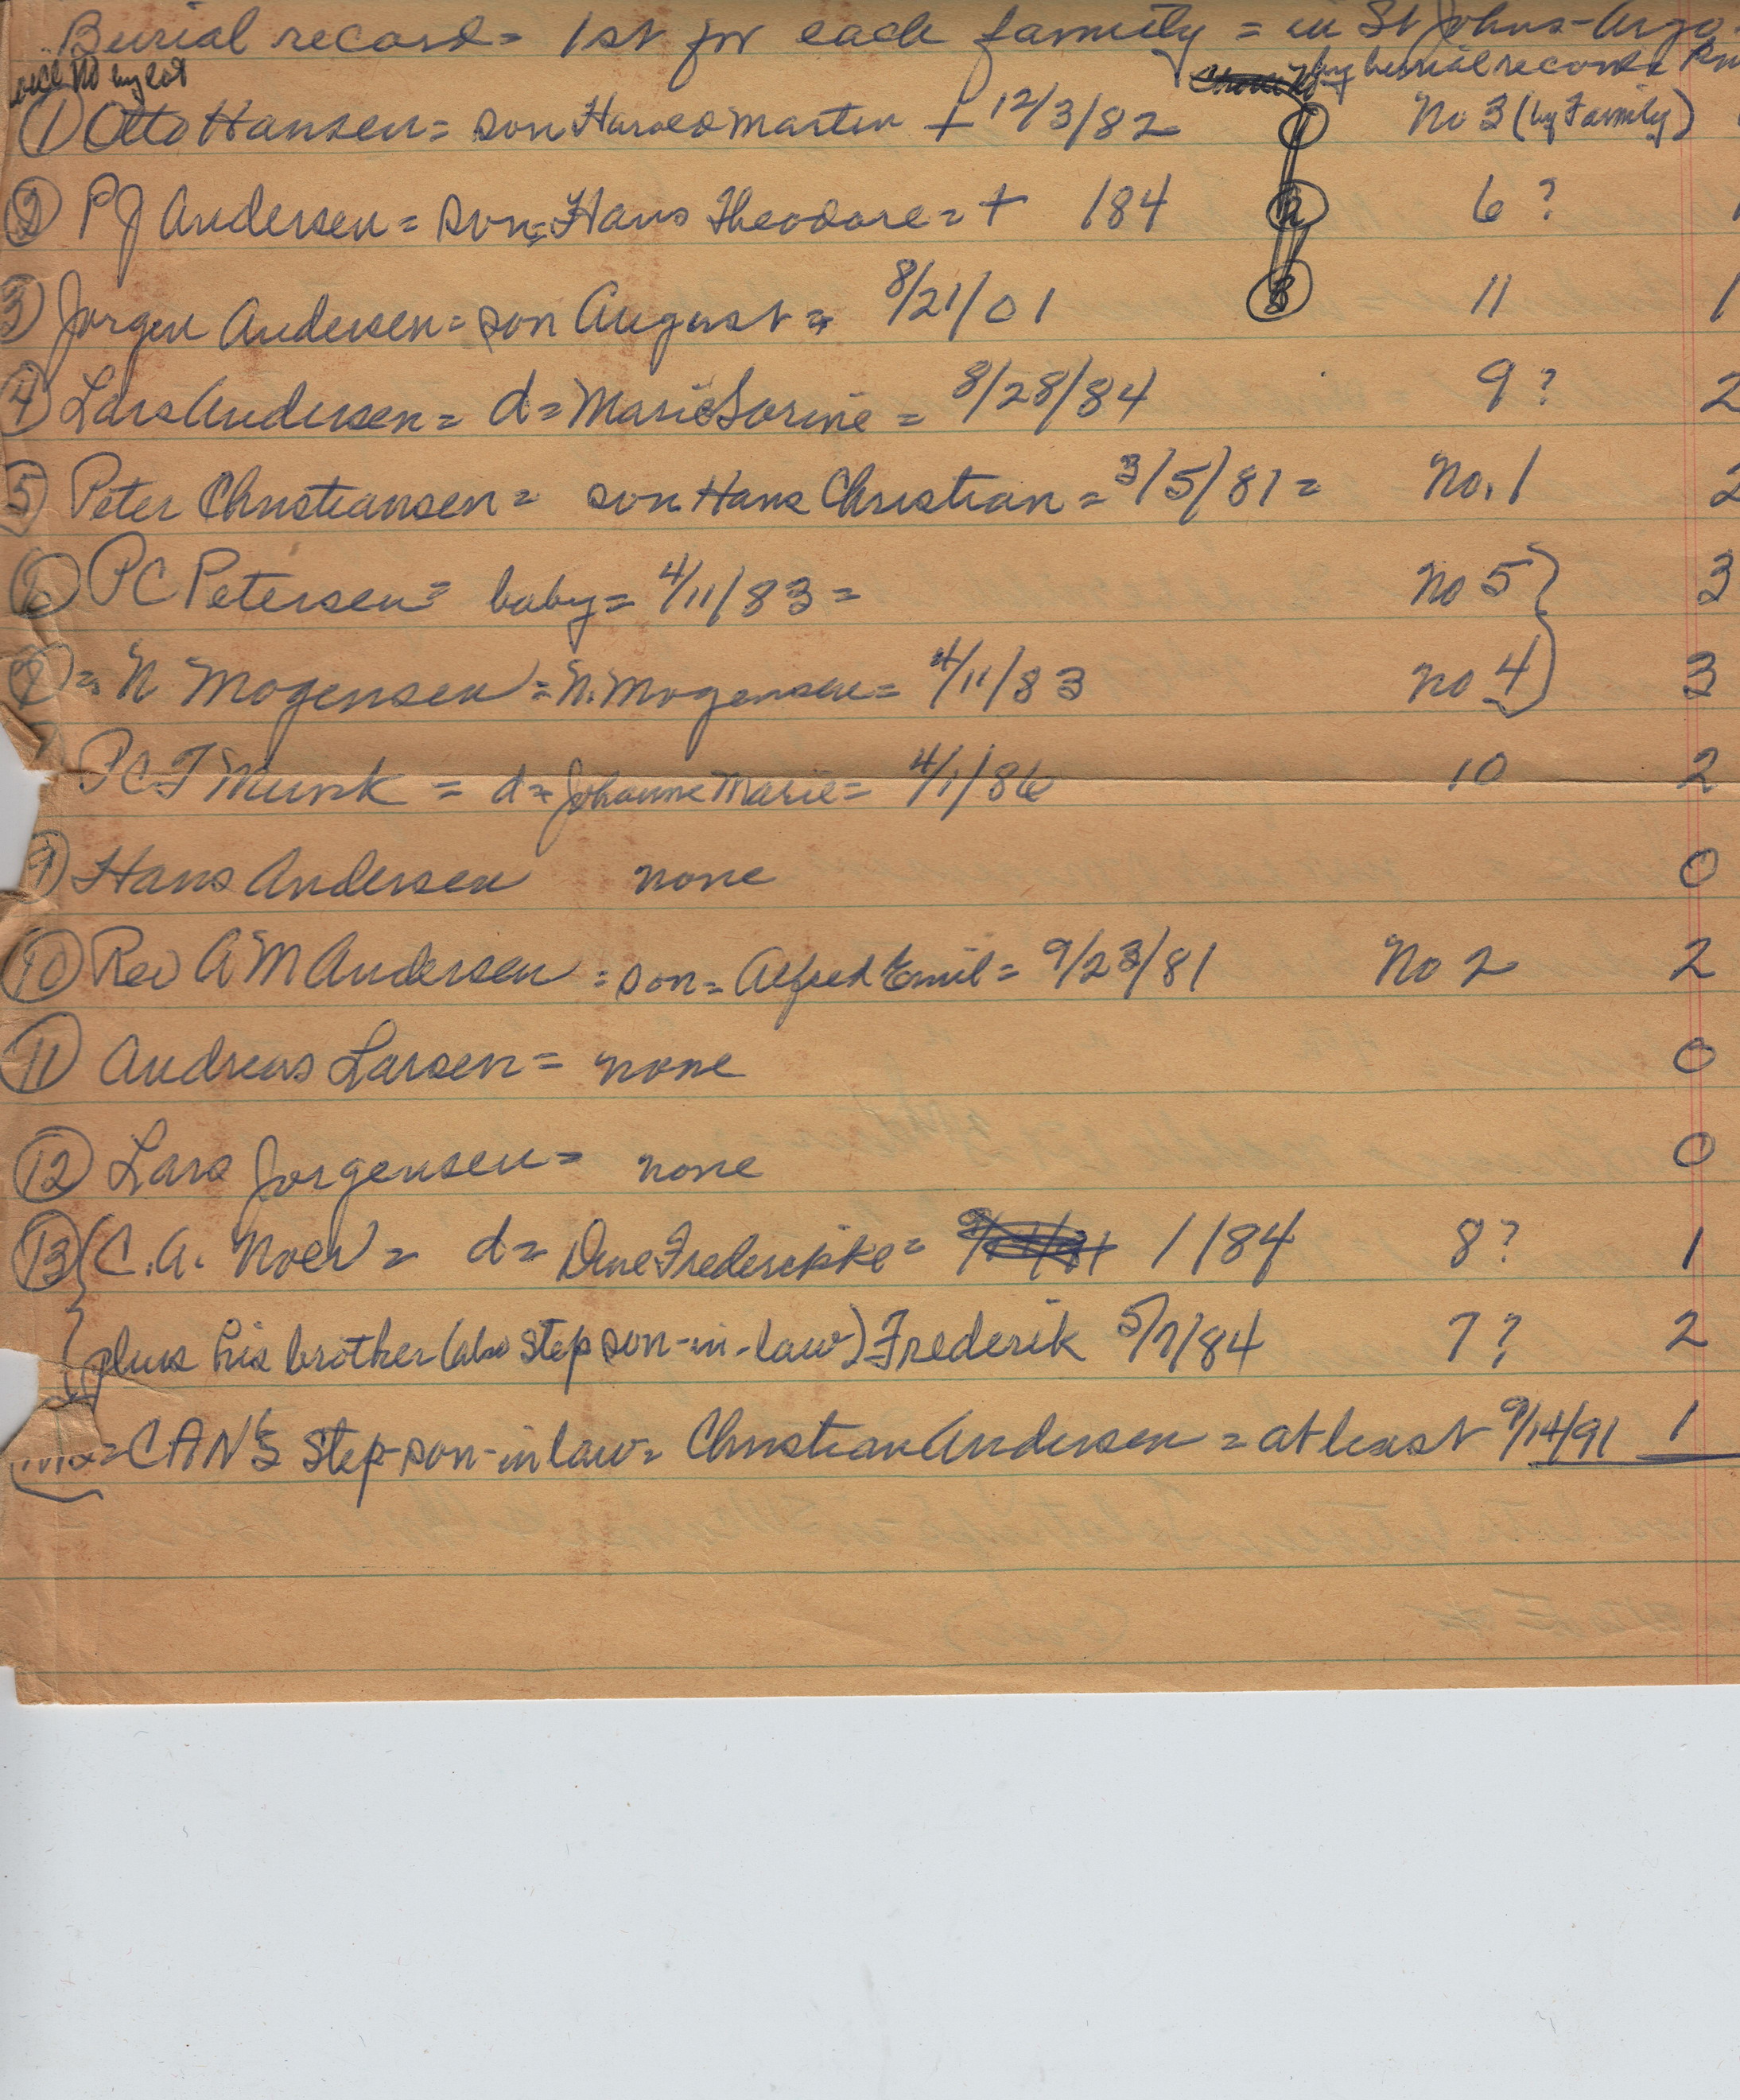 Burial record = 1st for each family = in St Johns - Argo
No by lot by burial records
① Otto Hansen = son Harold Martin + 12/3/82 ① No 3 (by Family)
② P J Andersen = son = Hans Theodore = + 184 ② 6 ? 1
③ Jorgen Andersen = son August = 8/21/01 ③ 11 1
④ Lars Andersen = d = Marie Sorine = 8/28/84 9 ? 2
⑤ Peter Christiansen = son Hans Christian = 3/5/81 = No. 1 2
⑥ PC Petersen = baby = 4/11/83 = No 5 } 3
= N Mogensen = N. Mogensen = 4/11/83 no 4 } 3
PCT Munk = d = Johanne Marie = 4/1/86 10 2
⑨ Hans Andersen none 0
⑩ Rev A M Andersen = son = Alfred Emil = 9/23/81 No 2 2
⑪ Andreas Larsen = none 0
⑫ Lars Jorgensen = none 0
⑬ { C. A. Noer = d = Dine Frederikke = 1/84 8 ? 1
{ plus his brother (also step son-in-law) Frederik 5/7/84 7 ? 2
= CAN's Step-son-in law = Christian Andersen = at least 9/14/91 1